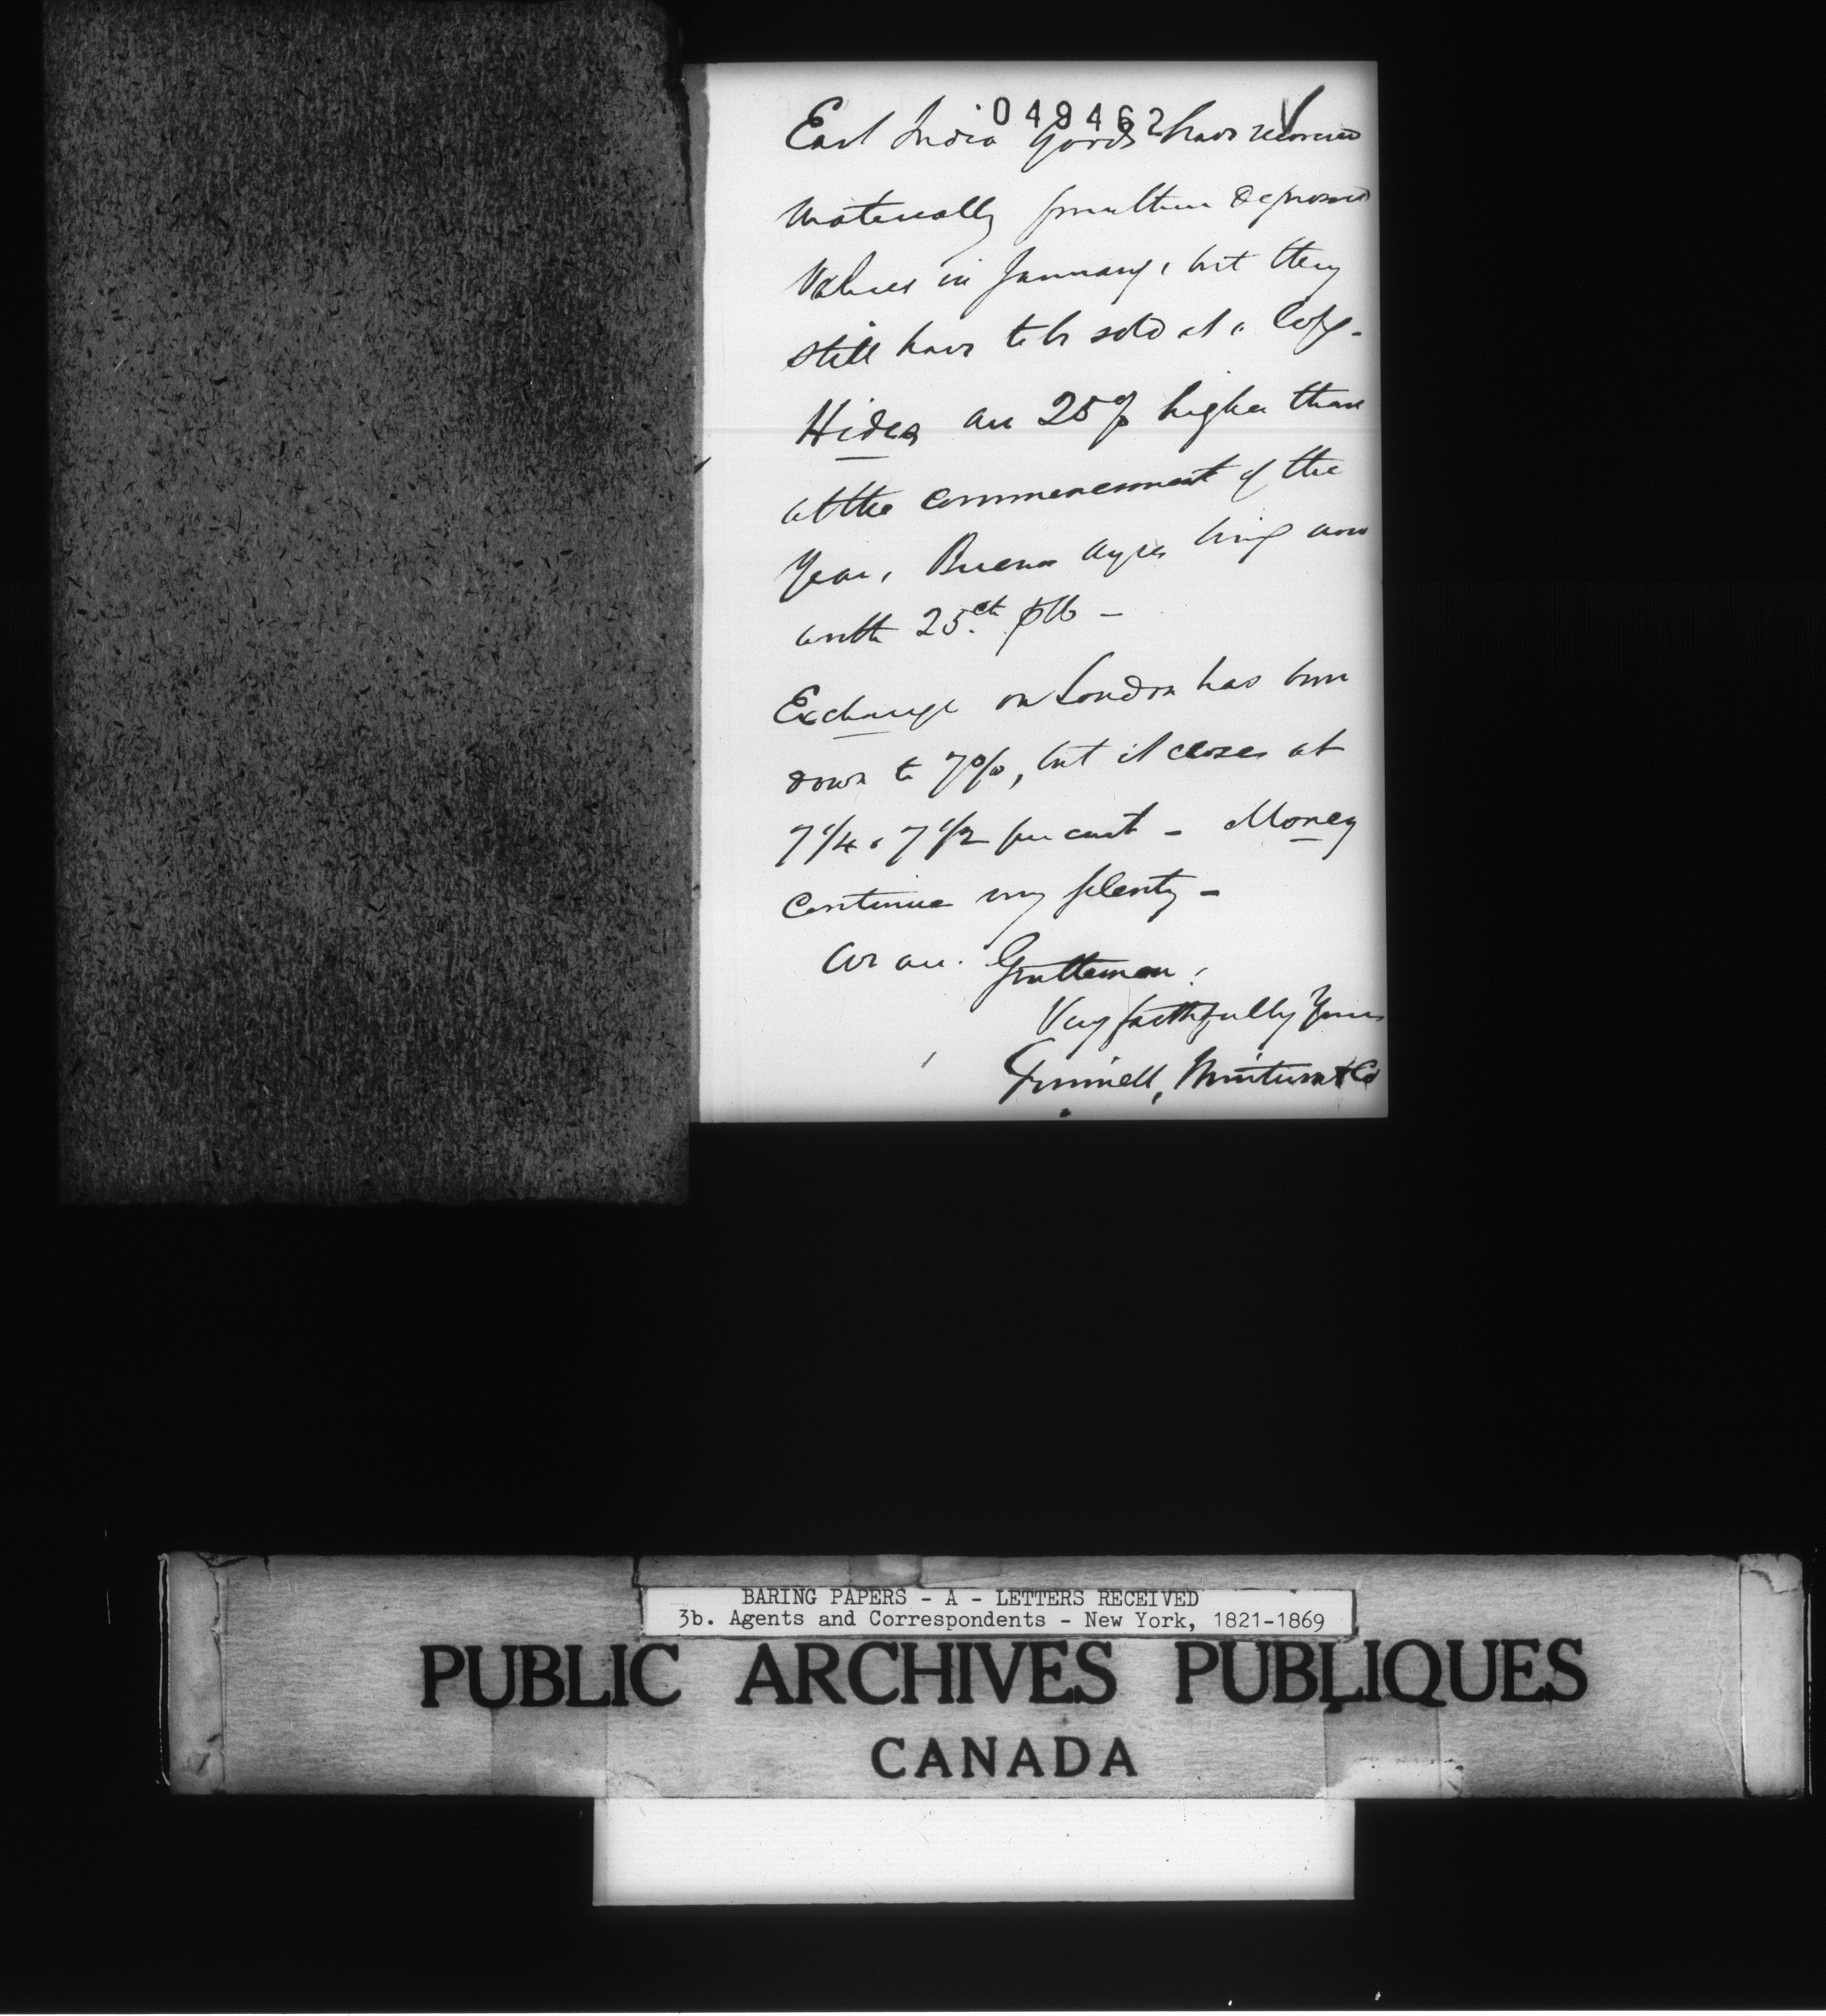 049462
East India Goods have recovered
materially from their depressed
values in January, but they
still have to be sold at a loss.
Hides are 25% higher than
at the commencement of the
year, Buenos Ayres being now
worth 25 cts ⅌ lb —
Exchange on London has been
down to 7%, but it closes at
7 1/4 a 7 1/2 per cent — Money
continues very plenty —
We are. Gentlemen,
Very faithfully Yours
Grinnell, Minturn & Co
BARING PAPERS - A - LETTERS RECEIVED
3b. Agents and Correspondents - New York, 1821-1869
PUBLIC ARCHIVES PUBLIQUES
CANADA